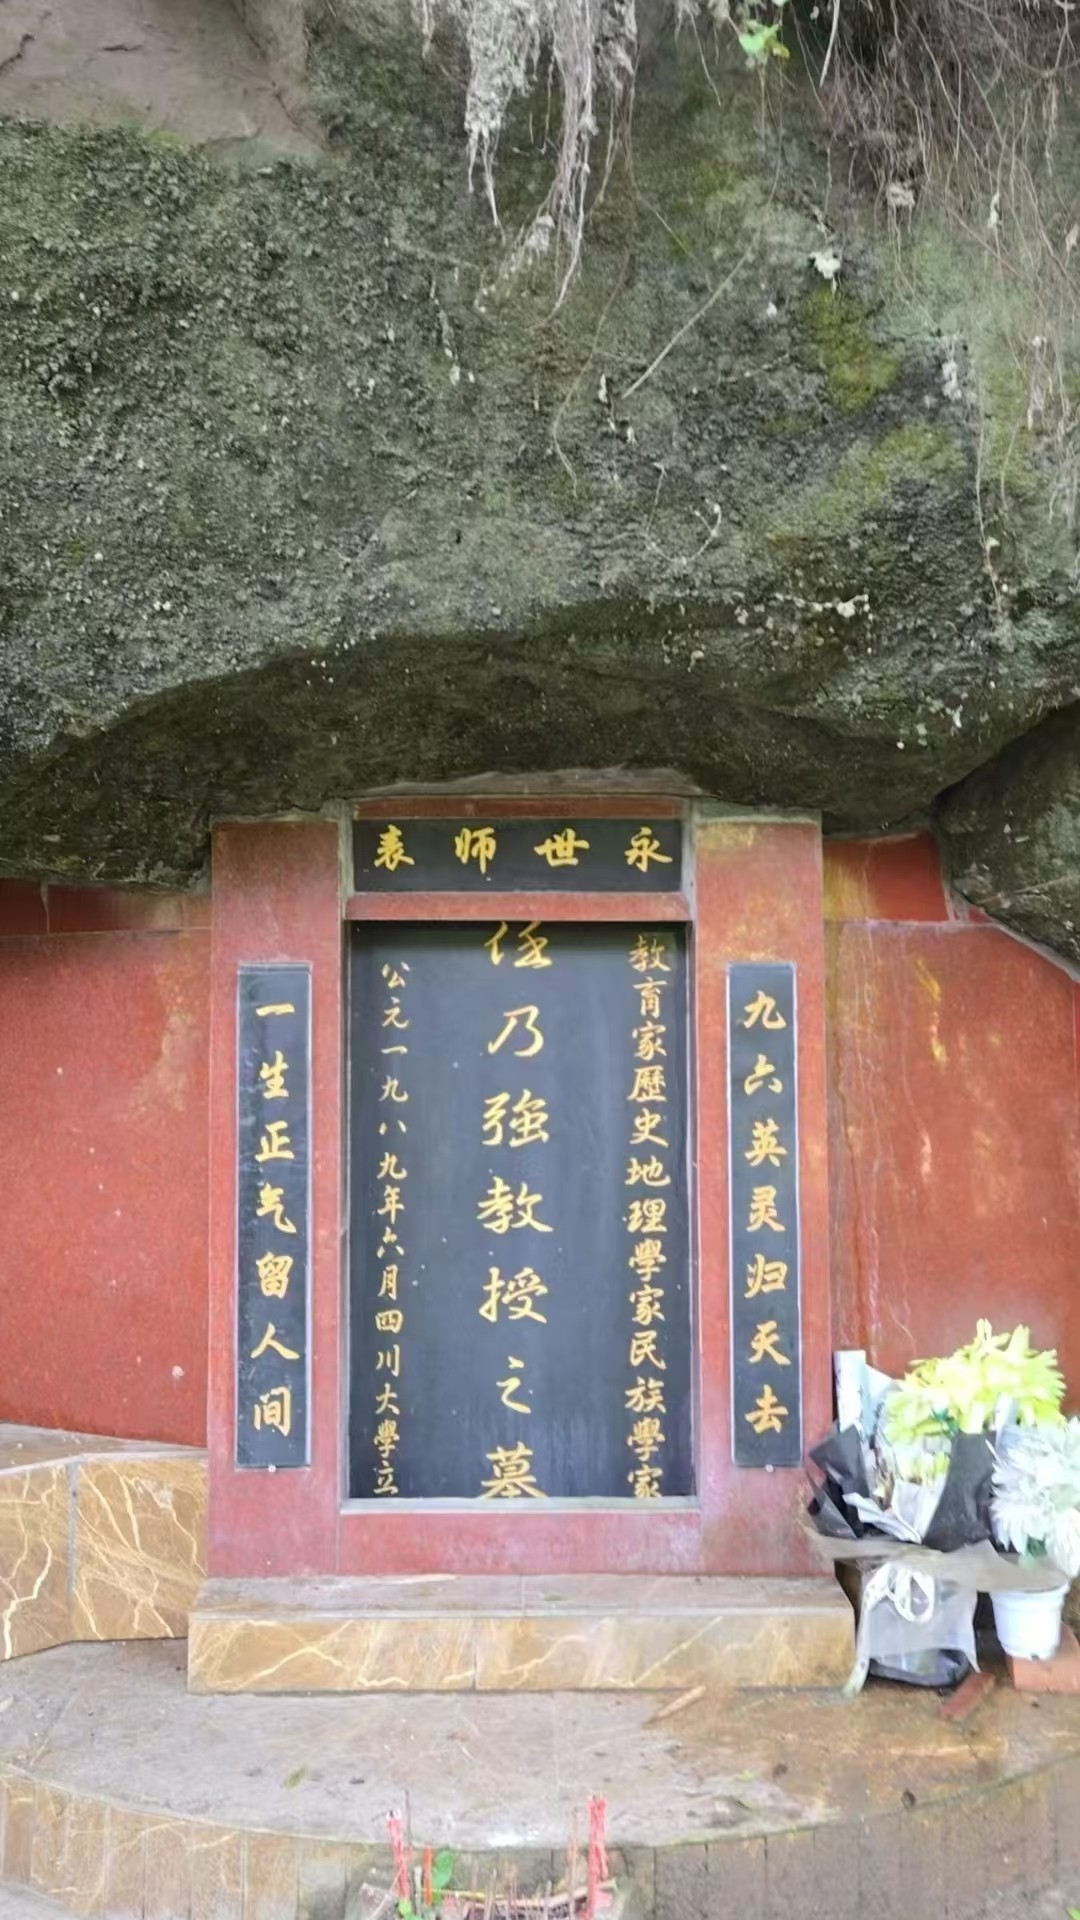 永世师表
九六英灵归天去
教育家歷史地理學家民族學家
任乃強教授之墓
公元一九八九年六月四川大學立
一生正气留人间